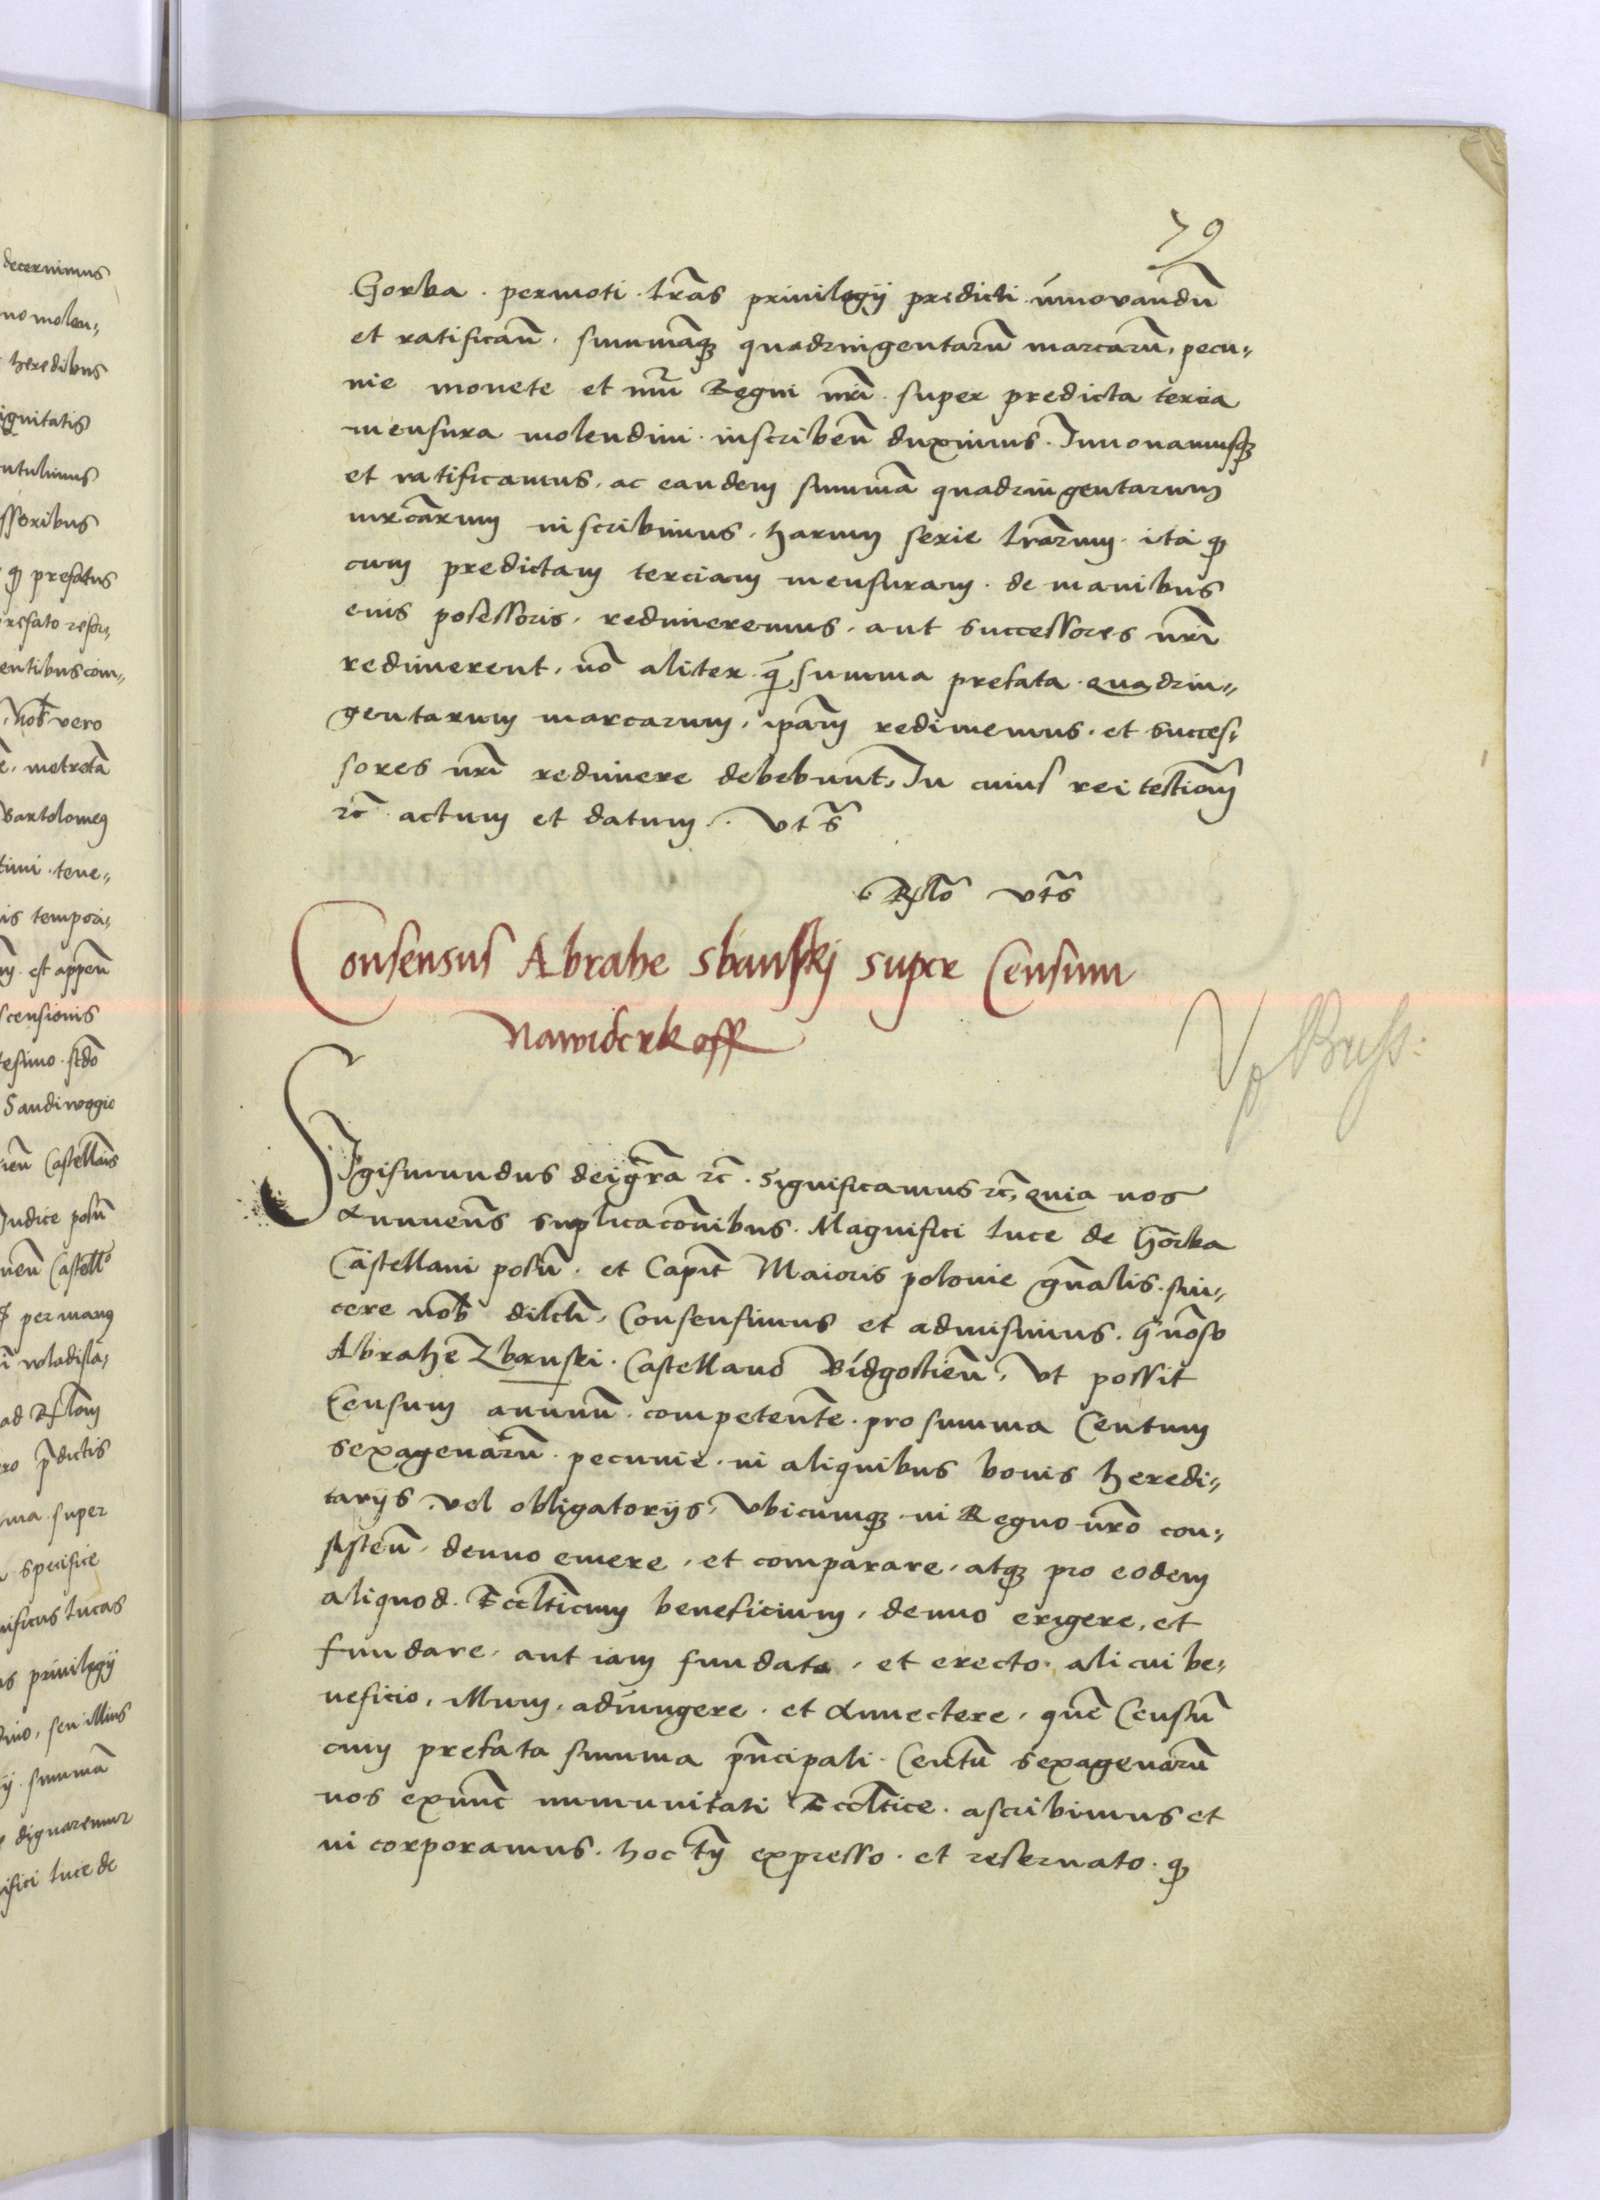 79
Gorka . permoti . lr̃as privilegij predicti innovandũ
et ratificañ . summãq₃ quadringentarũ marcarũ, pecu„
nie monete et nũi Regni nr̃i . super predicta tercia
mensura molendini . inscribeñ duximus . Innovamusq₃
et ratificamus, ac eandem summã quadringentarum
mrcarum inscribimus . harum serie lr̃arum . ita q̃
cum predictam terciam mensuram . de manibus
eius possessoris . redimeremus . aut successores nr̃i
redimerent, nõ aliter . q̃ summa prefata . quadrin„
gentarum marcarum, ip̃am redimemus . et succes„
sores nr̃i redimere debebunt, In cuius rei testioñ
rc̃ . actum et datum . vt s̃
Rl̃o vt s̃
Consensus Abrahe Sbanskj super Censum
Nawiderkoff
Sigismundus dei gr̃a rc̃ . Significamus rc̃, quia nos
Annueñs suplicacõnibus . Magnifici Luce de Gorka
Castellani posñ . et Capit̃ Maioris polonie gñalis . sin„
cere nob̃ dilcti, Consensimus et admisimus . Gñoso
Abrahe Zbanski . Castellano Bidgostieñ, Vt possit
Censum annuũ . competentẽ . pro summa Centum
sexagenarũ . pecunie . in aliquibus bonis heredi„
tarijs vel obligatorijs, vbicumq₃ in Regno nr̃o con„
sisteñ . denuo emere, et comparare, atq₃ pro eodem
aliquod . Eccl̃ticum beneficium, denuo erigere, et
fundare, aut iam fundato, et erecto . alicui be„
neficio, illum, adiungere . et Annectere, quẽ Censũ
cum prefata summa prñcipali . Centũ sexagenarũ
nos exnunc immunitati Eccl̃tice . ascribimus et
incorporamus . hoc tñ expresso . et reservato . q̃
decernimus
no molen„
heredibus
ignitatis
ntulimus
ssoribus
q̃ prefatus
entibus com„
nob̃ vero
metretã
Bartolomeꝯ
timi . tene„
is tempori„
et appeñ
scensionis
tesimo . scd̃o
Sandiwogio
Castellãis
Judice posñ
Castell̃o
per manꝯ
wladisla„
ad Rl̃om
p̃dictis
ma . super
specifice
nificus Lucas
privilegij
seu illius
summã
dignaremur
ifici Luce de